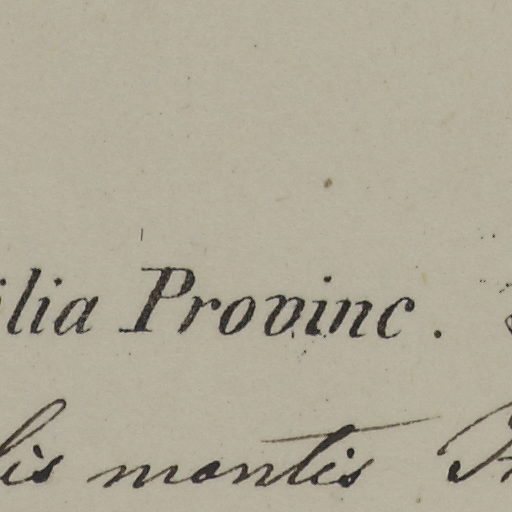 ilia Provinc.
lis montis